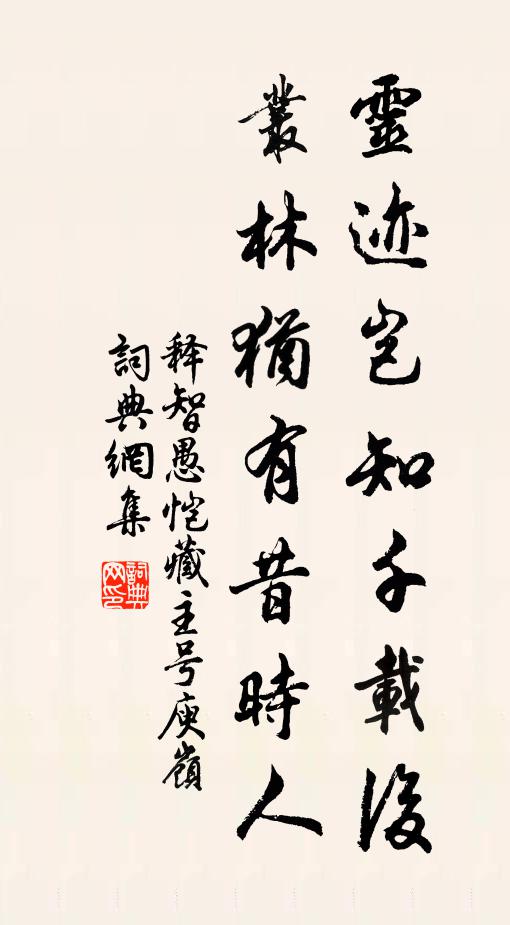 靈迹豈知千載後
叢林猶有昔時人
释智愚恺藏主号庾嶺
詞典網集
詞典網印